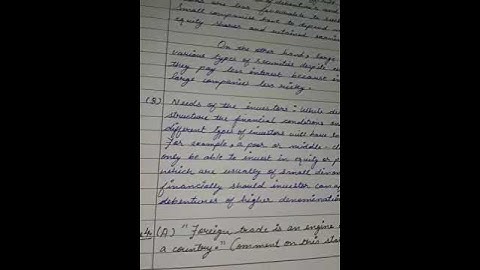 are less favourable to such
small companies have to depend
equity shares and retained earnin
On the other hand, large
various types of securities despite
they pay less interest because in
large companies less risky.
(5) Needs of the investors: While de
structure the financial conditions
different types of investors will have to
For example, a poor or middle-cl
only be able to invest in equity or p
which are usually of small denom
financially should investor can
debentures of higher denominatio
(A) "Foreign trade is an engine
a country." Comment on this sta